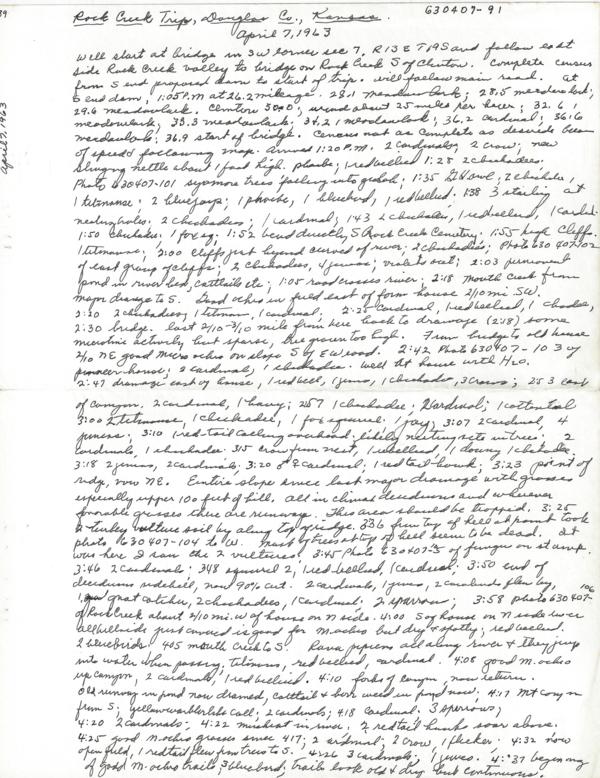 39
630407-91
Rock Creek Trip, Douglas Co., Kansas.
April 7, 1963
April 7, 1963
Will start at bridge in SW corner sec 7, R13E T19S and follow east
side Rock Creek valley to bridge on Rock Creek S of Clinton. Complete census
from S end proposed dam to start of trip. Will follow main road. At
S end dam, 1:05 P.M. at 26.2 mileage. 28.1 meadowlark; 28.5 meadowlark;
29.6 meadowlark. Clinton 30.0; wind about 25 miles per hour; 32.6 1
meadowlark; 33.5 meadowlark; 34.2 1 meadowlark; 36.2 cardinal; 36.6
meadowlark; 36.9 start of bridge. Census not as complete as desired because
of speed & following map. Arrived 1:20 P.M. 2 cardinals, 2 crow; new
stinging nettle about 1 foot high. phoebe; 1 redbellied 1:28 2 chickadees.
Photo 630407-101 sycamore trees falling into gulch; 1:35 owl, 2 chickadee,
1 titmouse; 2 bluejays; 1 phoebe, 1 bluebird, 1 redbellied. 1:38 3 starling at
nesting holes. 2 chickadees; 1 cardinal; 1:43 2 chickadees, 1 redbellied, 1 cardinal.
1:50 chickadee; 1 fox sq.; 1:52 bend directly S Rock Creek Cemetery. 1:55 high cliffs.
1 titmouse; 2:00 cliffs just beyond curved of river. 2 chickadees; Photo 630407-102
of east group of cliffs; 2 chickadees, 4 juncos; violets out; 2:03 permanent
pond in river bed, cattails etc; 1:05 road crosses river. 2:18 mouth creek from
major drainage to S. Good ochro in field east of farm house 2/10 mi. SW.
2:20 2 chickadees, 1 titmouse, 1 cardinal; 2:25 cardinal, 1 redbellied, 1 chickadee,
2:30 bridge. last 2/10-3/10 mile from here back to drainage (2:18) some
microtine activity but sparse, bluegrass too high. From bridge to old house
2/10 NE good micro ochro on slope S of E wood. 2:42 Photo 630407-103 of
pioneer house; 2 cardinals, 1 chickadee. Well at house with H2O.
2:47 drainage east of house, 1 redbell, 1 junco, 1 chickadee, 3 crows; 2:53 east
of canyon. 2 cardinal, 1 hairy; 2:57 1 chickadee; 2 cardinal; 1 cottontail
3:00 2 titmouse, 1 chickadee, 1 fox squirrel; jay; 3:07 2 cardinal, 4
juncos; 3:10 1 red-tail calling overhead; likely nesting site in trees. 2
cardinals, 1 chickadee 3:15 crow from nest, 1 redbellied, 1 downy 1 chickadee.
3:18 2 juncos, 2 cardinals; 3:20 ♂♀ cardinal; 1 redtail hawk; 3:23 point of
ridge, now NE. Entire slope since last major drainage with grasses
especially upper 100 feet of hill. All in climax deciduous and wherever
favorable grasses there are runways. This area should be trapped. 3:25
2 turkey vulture sail by along top of ridge. 3:36 from top of hill at point took
photo 630407-104 to W. Most of trees at top of hill seem to be dead. It
was here I saw the 2 vultures. 3:45 Photo 630407-105 of fungus on stump.
3:46 2 cardinals; 3:48 squirrel 2; 1 red-bellied, 1 cardinal; 3:50 end of
deciduous sidehill, now 90% cut. 2 cardinals, 1 junco, 2 cowbirds flew by,
1 gnatcatcher, 2 chickadees, 1 cardinal. 2 sparrow; 3:58 photo 630407-106
of Rock Creek about 2/10 mi. W of house on N side. 4:00 S of house on N side river
all hillside just covered is good for M. ochro but dry & spotty; red bellied.
2 bluebirds. 4:05 mouth creek to S. Rana pipiens all along river & they jump
into water when passing, titmouse, red bellied, cardinal. 4:08 good M. ochro
up canyon, 2 cardinals, 1 red bellied. 4:10 forks of canyon, now return.
Old runway in pond now drained, cattail & in pond now; 4:17 Mt canyon
from S; yellow warbler like call. 2 cardinals; 4:18 cardinal. 3 sparrows;
4:20 2 cardinals; 4:22 muskrat in river. 2 redtail hawks soar above.
4:25 good M. ochro grasses since 4:17; 2 cardinal; 2 crow, 1 flicker. 4:32 now
open field, 1 redtail flew from trees to S. 4:26 3 cardinals; 1 juncos. 4:37 beginning
of good M. ochro trails; 3 bluebird; trails look old & dry but continuous